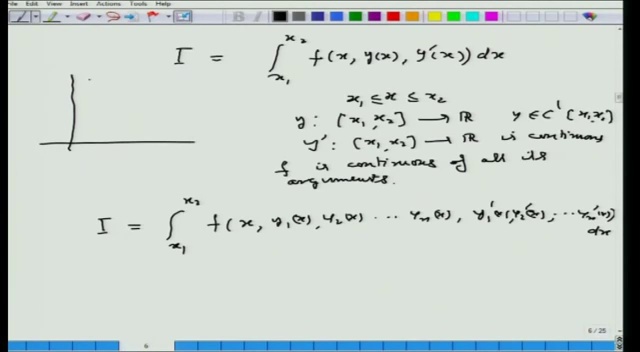 File Edit View Insert Actions Tools Help
I = ∫_{x₁}^{x₂} f(x, y(x), y'(x)) dx
x₁ ≤ x ≤ x₂
y : [x₁, x₂] → ℝ y ∈ C¹[x₁, x₂]
y' : [x₁, x₂] → ℝ is continuous
f is continuous of all its
arguments.
I = ∫_{x₁}^{x₂} f(x, y₁(x), y₂(x) ... yₙ(x), y₁'(x), y₂'(x), ... yₙ'(x))
dx
6 / 25
6